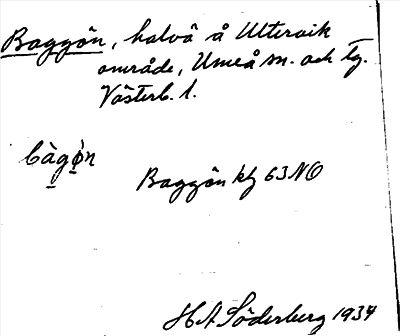 Baggön, halvö å Ultervik
område, Umeå sn. och tg.
Västerb. l.
bàgø̀n
Baggön kbg 63 NO
H A Söderberg 1934